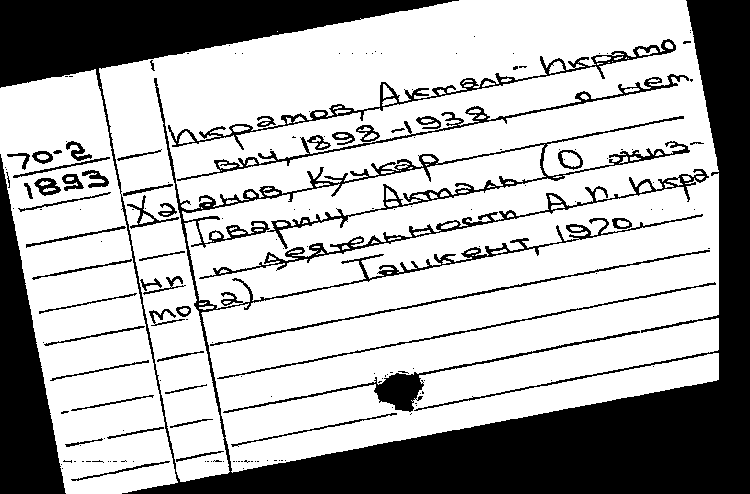 Икрамов, Акмаль Икрамо-
вич, 1898-1938, о нем.
70-2
1893
Хасанов, Кучкар
Товарищ Акмаль. (О жиз-
ни и деятельности А.И. Икра-
мова). Ташкент, 1970.